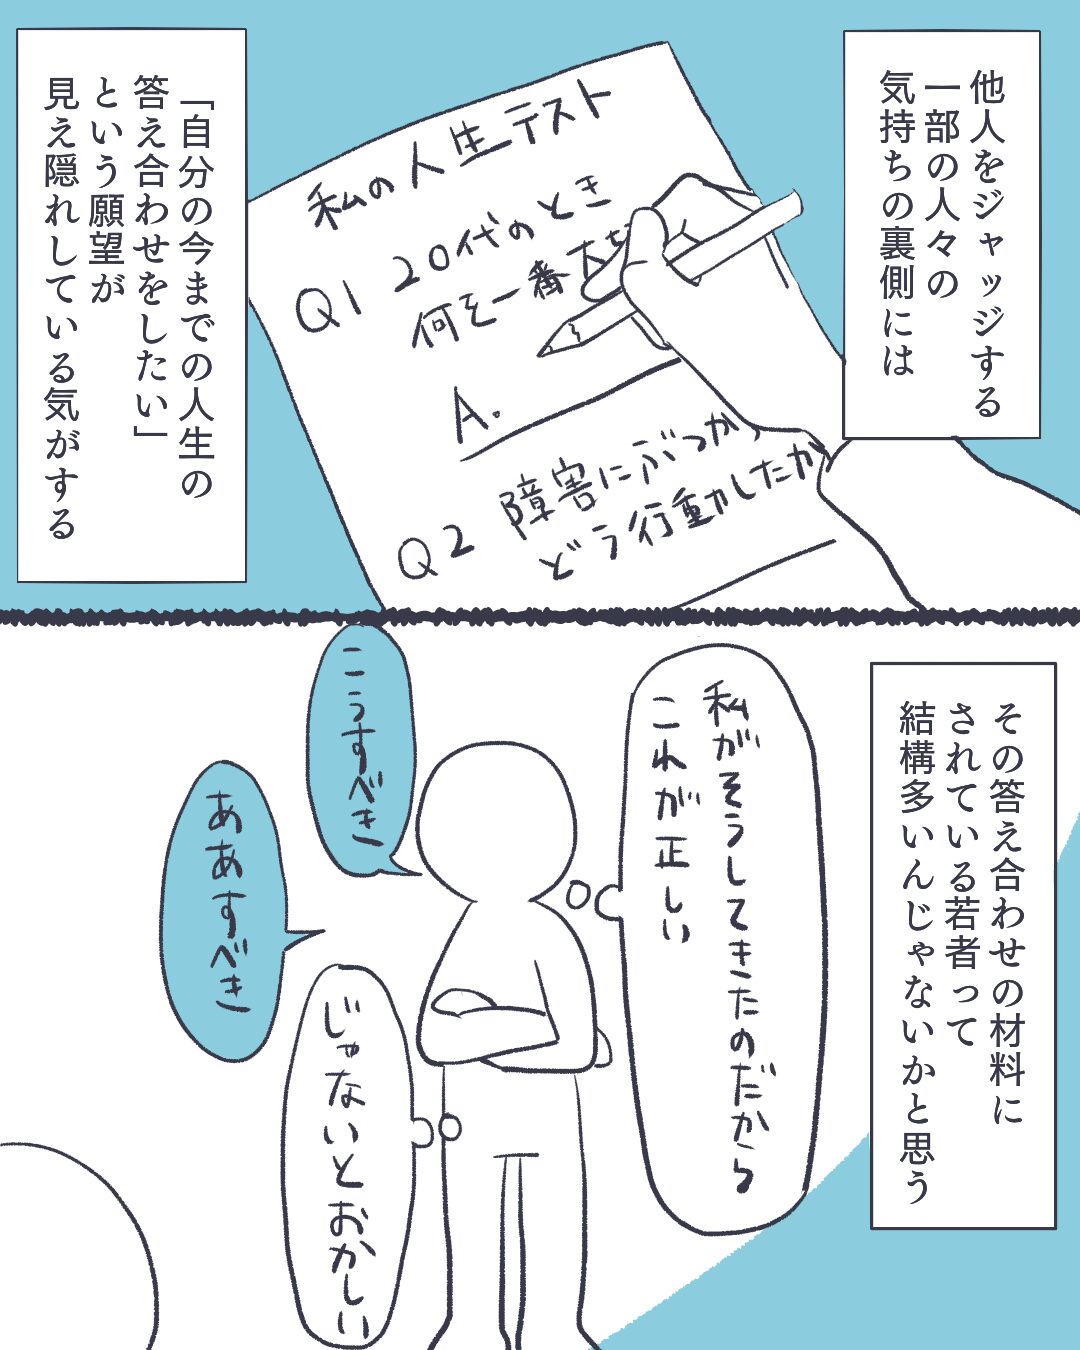 他人をジャッジする
一部の人々の
気持ちの裏側には
私の人生テスト
Q1 20代のとき
何を一番大切
A.
Q2 障害にぶつかり
どう行動したか
「自分の今までの人生の
答え合わせをしたい」
という願望が
見え隠れしている気がする
その答え合わせの材料に
されている若者って
結構多いんじゃないかと思う
私がそうしてきたのだから
これが正しい
こうすべき
ああすべき
じゃないとおかしい